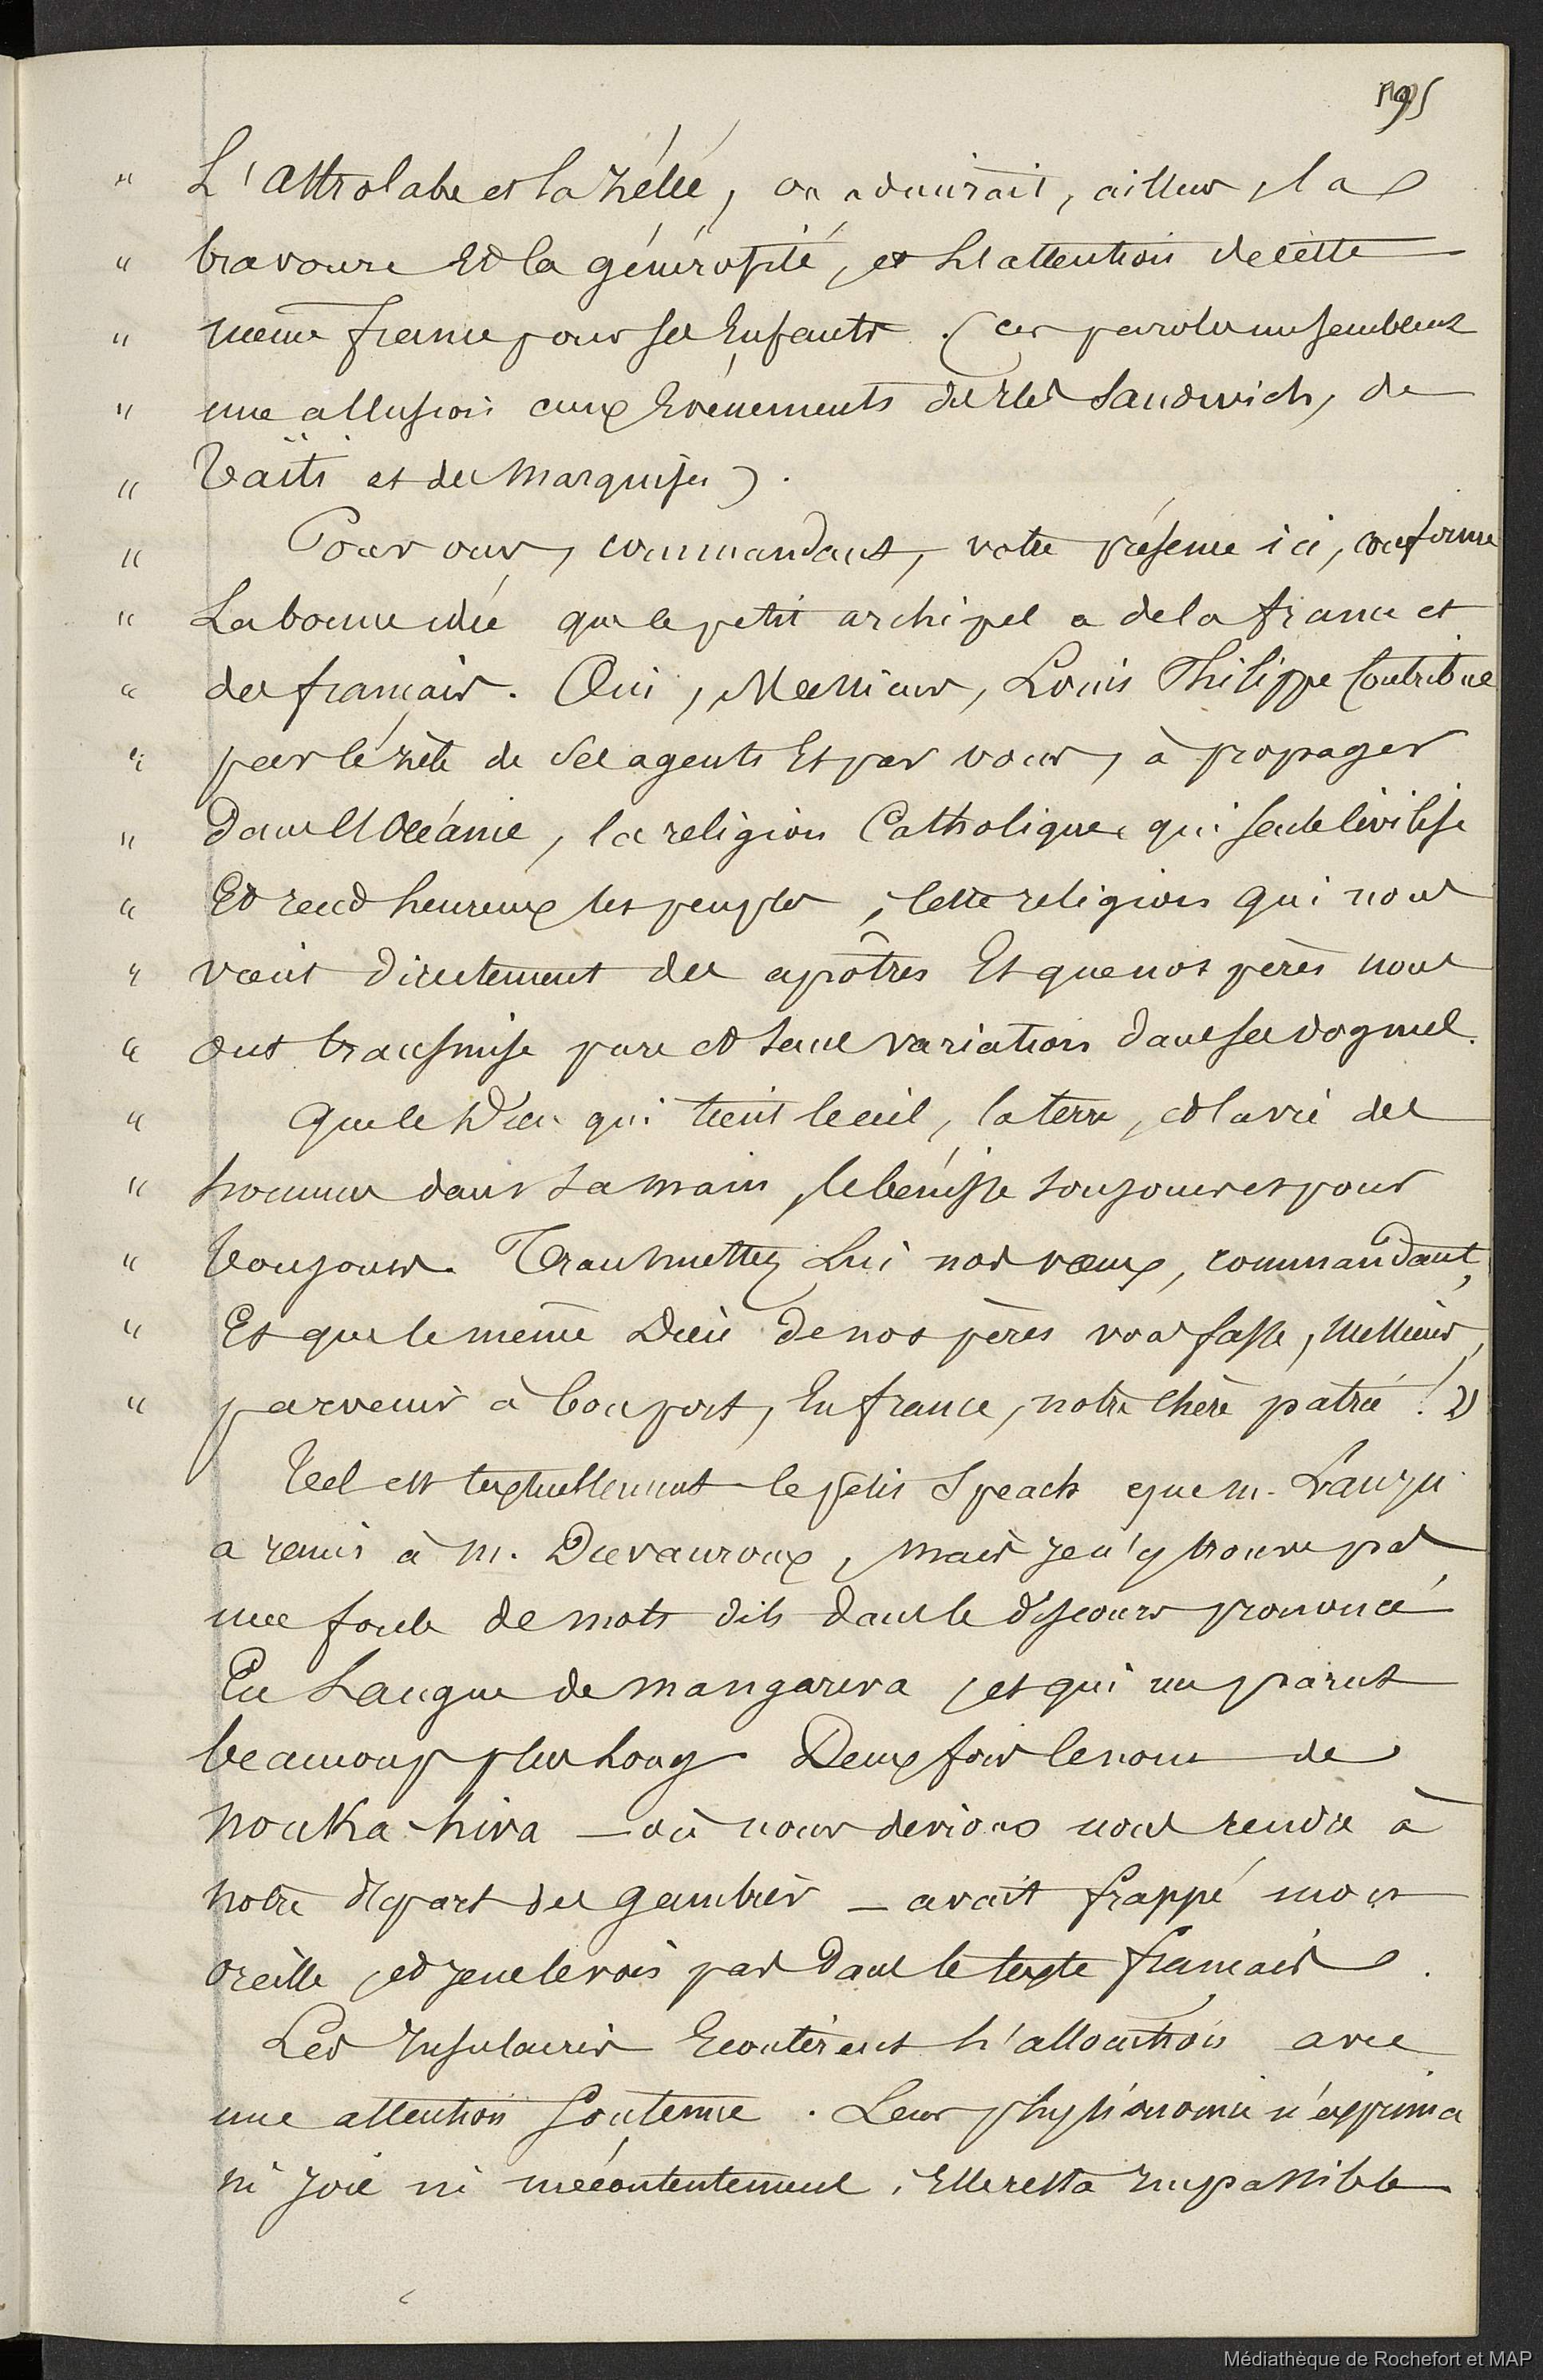 195
" L'Astrolabe et la Zélée, on admirait, ailleurs, la
" bravoure et la générosité, et l'attention de cette
" même france pour ses Enfants. (ces paroles me semblent
" une allusion aux Evénements des Iles Sandwich, de
" Taïti et des Marquises).
" Pour nous, commandant, votre présence ici, confirme
" La bonne idée que le petit archipel a de la france et
" des français. Oui, Messieurs, Louis Philippe Contribue
" par le zèle de Ses agents Et par vous, à propager
" Dans l'Océanie, la religion Catholique qui seule Civilise
" Et rend heureux les peuples, Cette religion qui nous
" vient directement des apôtres Et que nos pères nous
" Ont transmise pure et Sans variation dans ses dogmes.
" Que le Dieu qui tient le ciel, la terre, et la vie des
" hommes dans Sa main, le bénisse toujours et pour
" Toujours. Transmettez Lui nos vœux, commandant,
" Et que le même Dieu de nos pères vous fasse, messieurs,
" parvenir à bon port, En france, notre Chère patrie! »
Tel est textuellement le petit Speach que m.
a remis à m. Devauroux, mais je n'y trouve pas
une foule de mots dits dans le discours prononcé
En Langue de mangareva, et qui me parut
beaucoup plus Long. Deux fois le nom de
Nouka-hiva — où nous devions nous rendre à
Notre départ des gambier — avait frappé mon
Oreille, et je ne le vois pas Dans le texte français.
Les Insulaires Ecoutèrent L'allocution avec
une attention Soutenue. Leur physionomie n'exprima
ni Joie ni mécontentement, Elle resta Impassible
Médiathèque de Rochefort et MAP